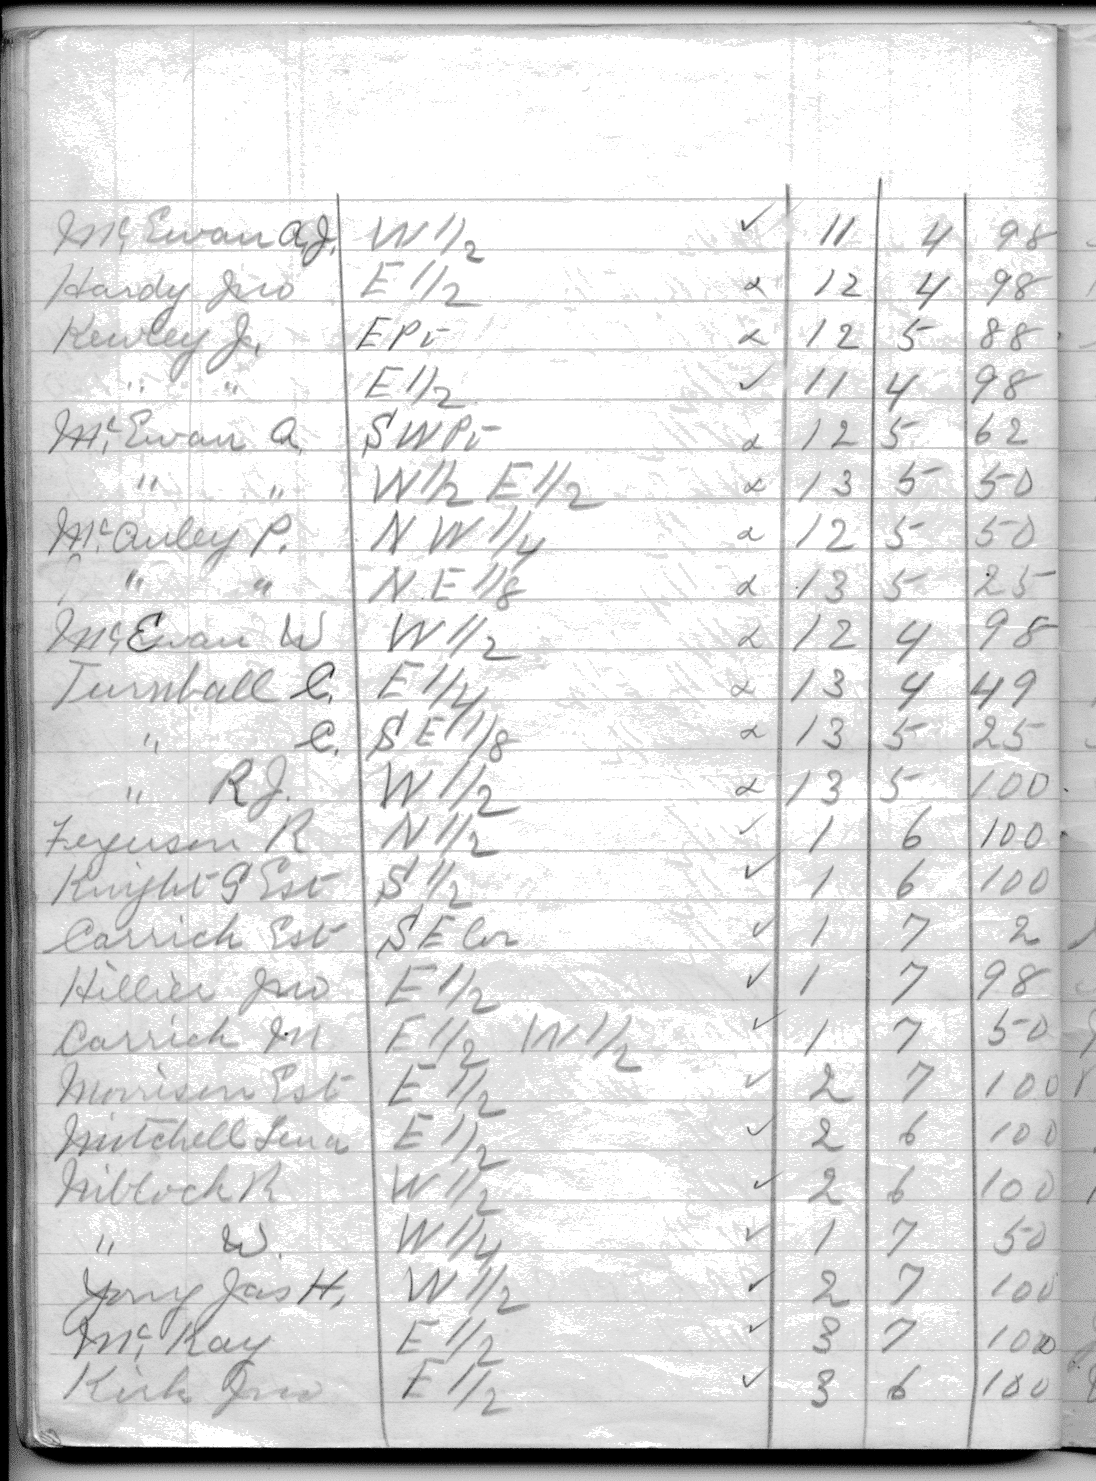 McEwan A.J. W 1/2 ✓ 11 4 98
Hardy Jno E 1/2 α 12 4 98
Kewley J. E Pt α 12 5 88
" " E 1/2 ✓ 11 4 98
McEwan A. S W Pt α 12 5 62
" " W 1/2 E 1/2 α 13 5 50
McAuley P. N W 1/4 α 12 5 50
" " N.E 1/8 α 13 5 25
McEwan W W 1/2 α 12 4 98
Turnball C. E 1/4 α 13 4 49
" C. S E 1/8 α 13 5 25
" R.J. W 1/2 α 13 5 100
Ferguson R N 1/2 ✓ 1 6 100
Knight G Est S 1/2 ✓ 1 6 100
Carrick Est S E Cor ✓ 1 7 2
Hillier Jno E 1/2 ✓ 1 7 98
Carrick M E 1/2 W 1/2 ✓ 1 7 50
Morrison Est E 1/2 ✓ 2 7 100
Mitchell Lena E 1/2 ✓ 2 6 100
Niblock R W 1/2 ✓ 2 6 100
" W. W 1/4 ✓ 1 7 50
Jas H. W 1/2 ✓ 2 7 100
McKay E 1/2 ✓ 3 7 100
Kirk Jno E 1/2 ✓ 3 6 100